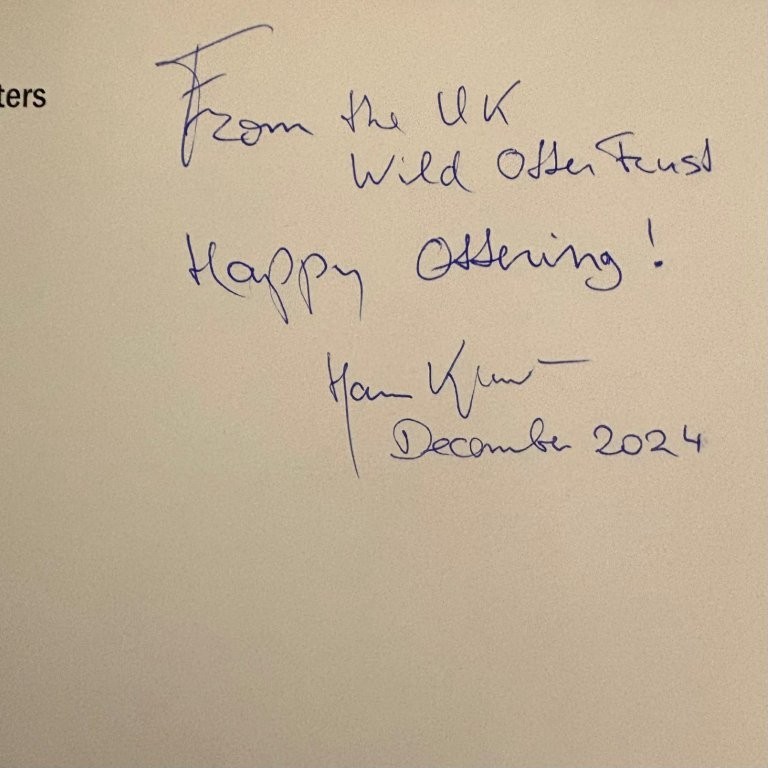 ters
From the UK
Wild Otter Trust
Happy Ottering!
December 2024